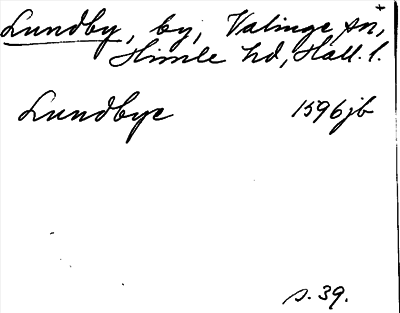 Lundby, by, Valinge sn,
Himle hd, Hall. l.
Lundbye 1596 jb
s. 39.